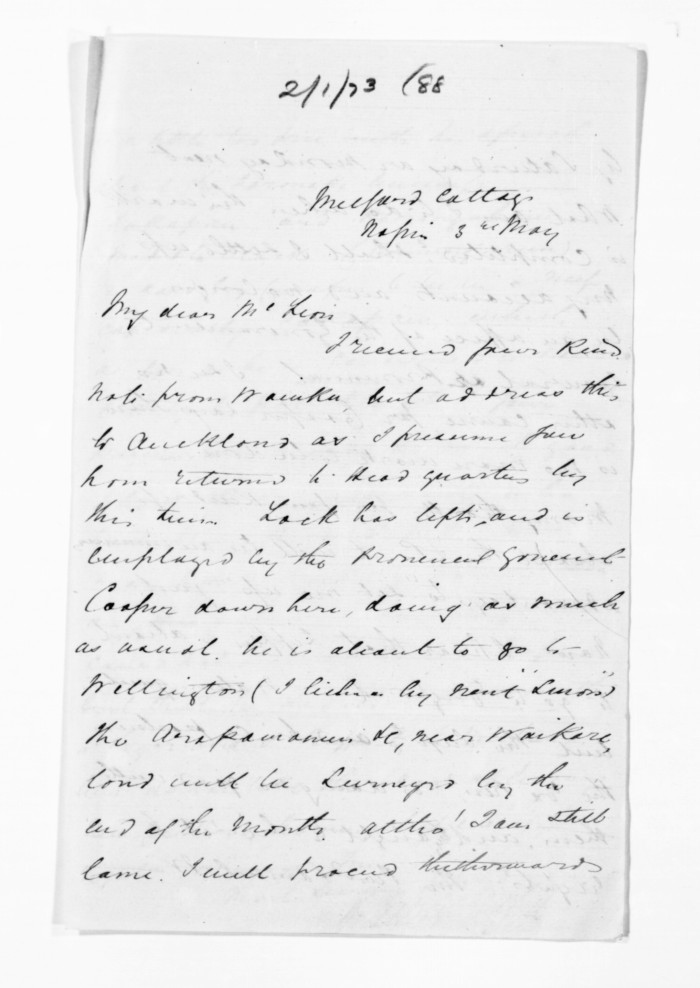 2/1/73 (88
Milford Cottage
Napier 3rd May
My dear Mc Lean
I received your kind
note from Waiuku, but address this
to Auckland as I presume you
have returned to Head quarters by
this time. Lock has left, and is
employed by the Provincial Government
Cooper down here, doing as much
as usual. he is about to go to
Wellington ( I believe by next
the
&c, near Waikare,
land will be surveyed by the
end of the month. altho' I am still
lame. I will proceed thitherwards